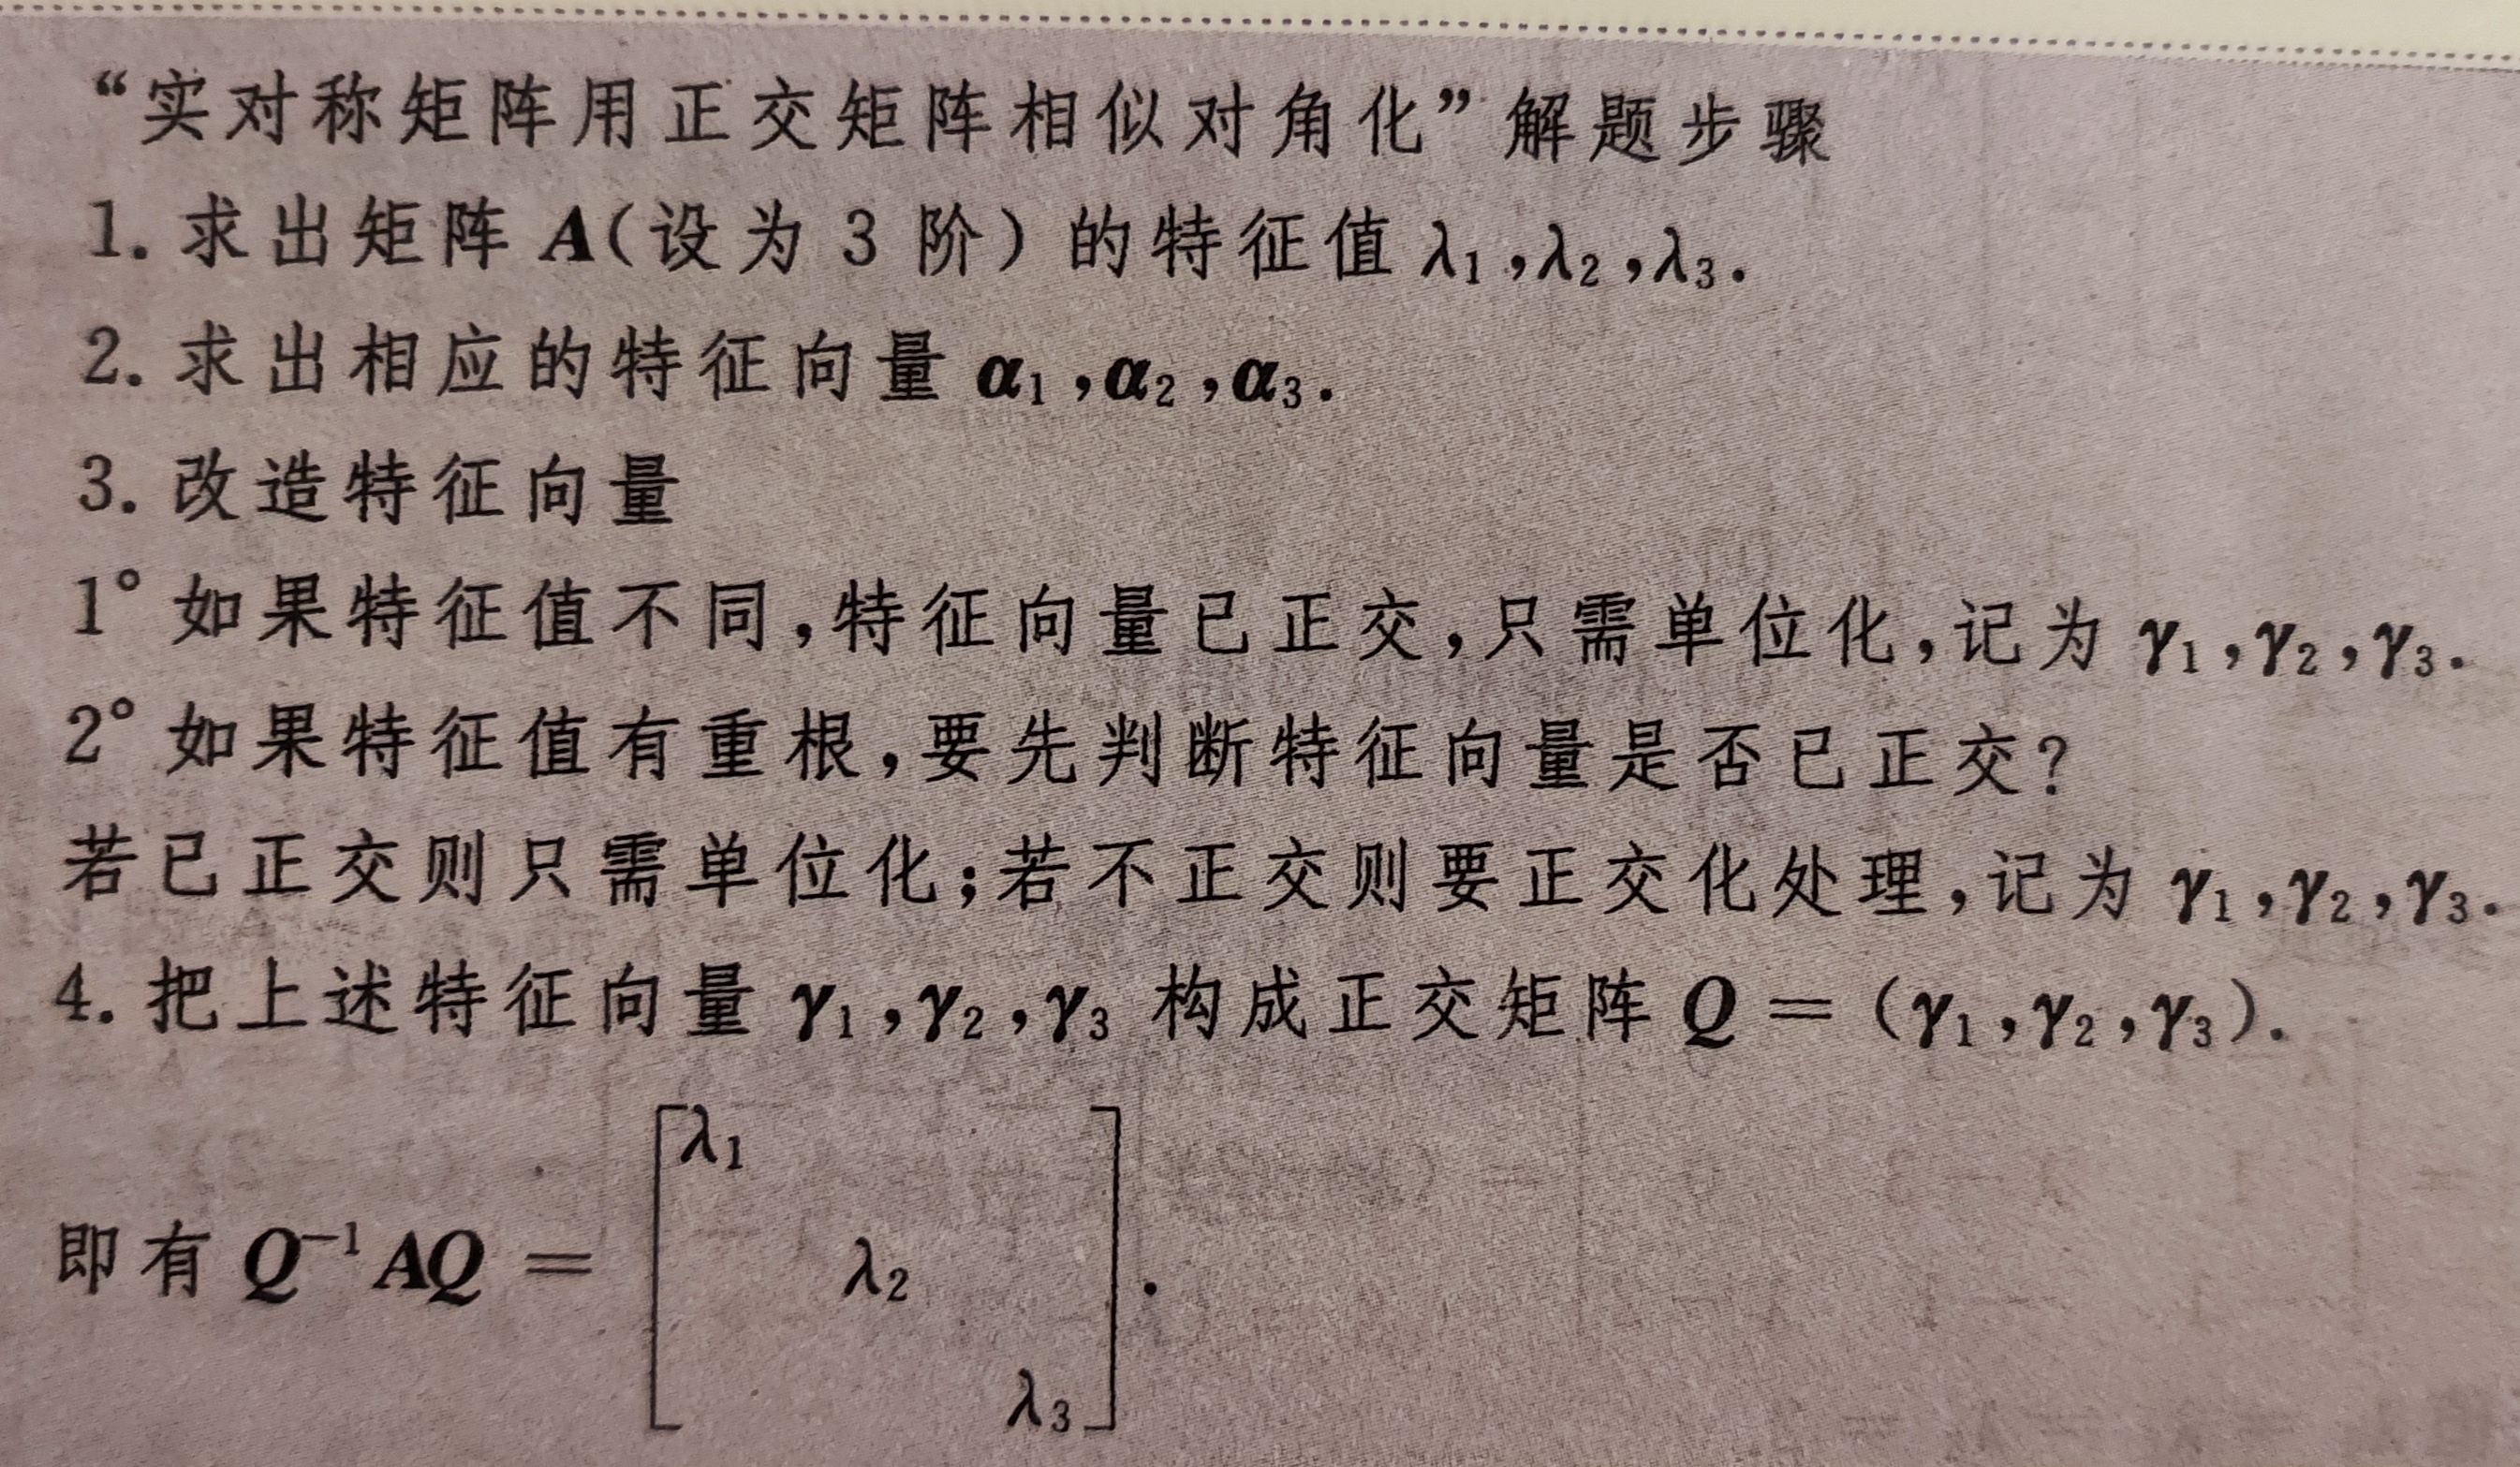 “实对称矩阵用正交矩阵相似对角化”解题步骤
1. 求出矩阵 A(设为 3 阶) 的特征值 λ₁,λ₂,λ₃.
2. 求出相应的特征向量 α₁,α₂,α₃.
3. 改造特征向量
1° 如果特征值不同,特征向量已正交,只需单位化,记为 γ₁,γ₂,γ₃.
2° 如果特征值有重根,要先判断特征向量是否已正交?
若已正交则只需单位化;若不正交则要正交化处理,记为 γ₁,γ₂,γ₃.
4. 把上述特征向量 γ₁,γ₂,γ₃ 构成正交矩阵 Q = (γ₁,γ₂,γ₃).
λ₁
即有 Q⁻¹AQ = [ λ₂ ].
λ₃